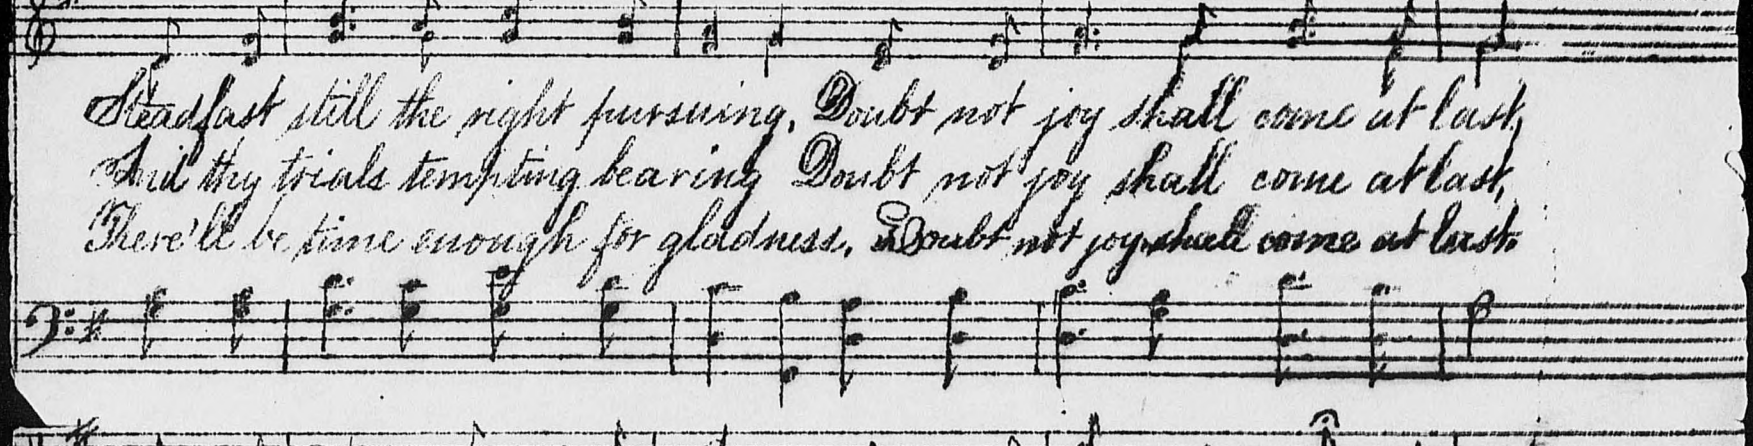 Steadfast still the right pursuing, Doubt not joy shall come at last,
And thy trials tempting bearing Doubt not joy shall come at last,
There'll be time enough for gladness, Doubt not joy shall come at last.